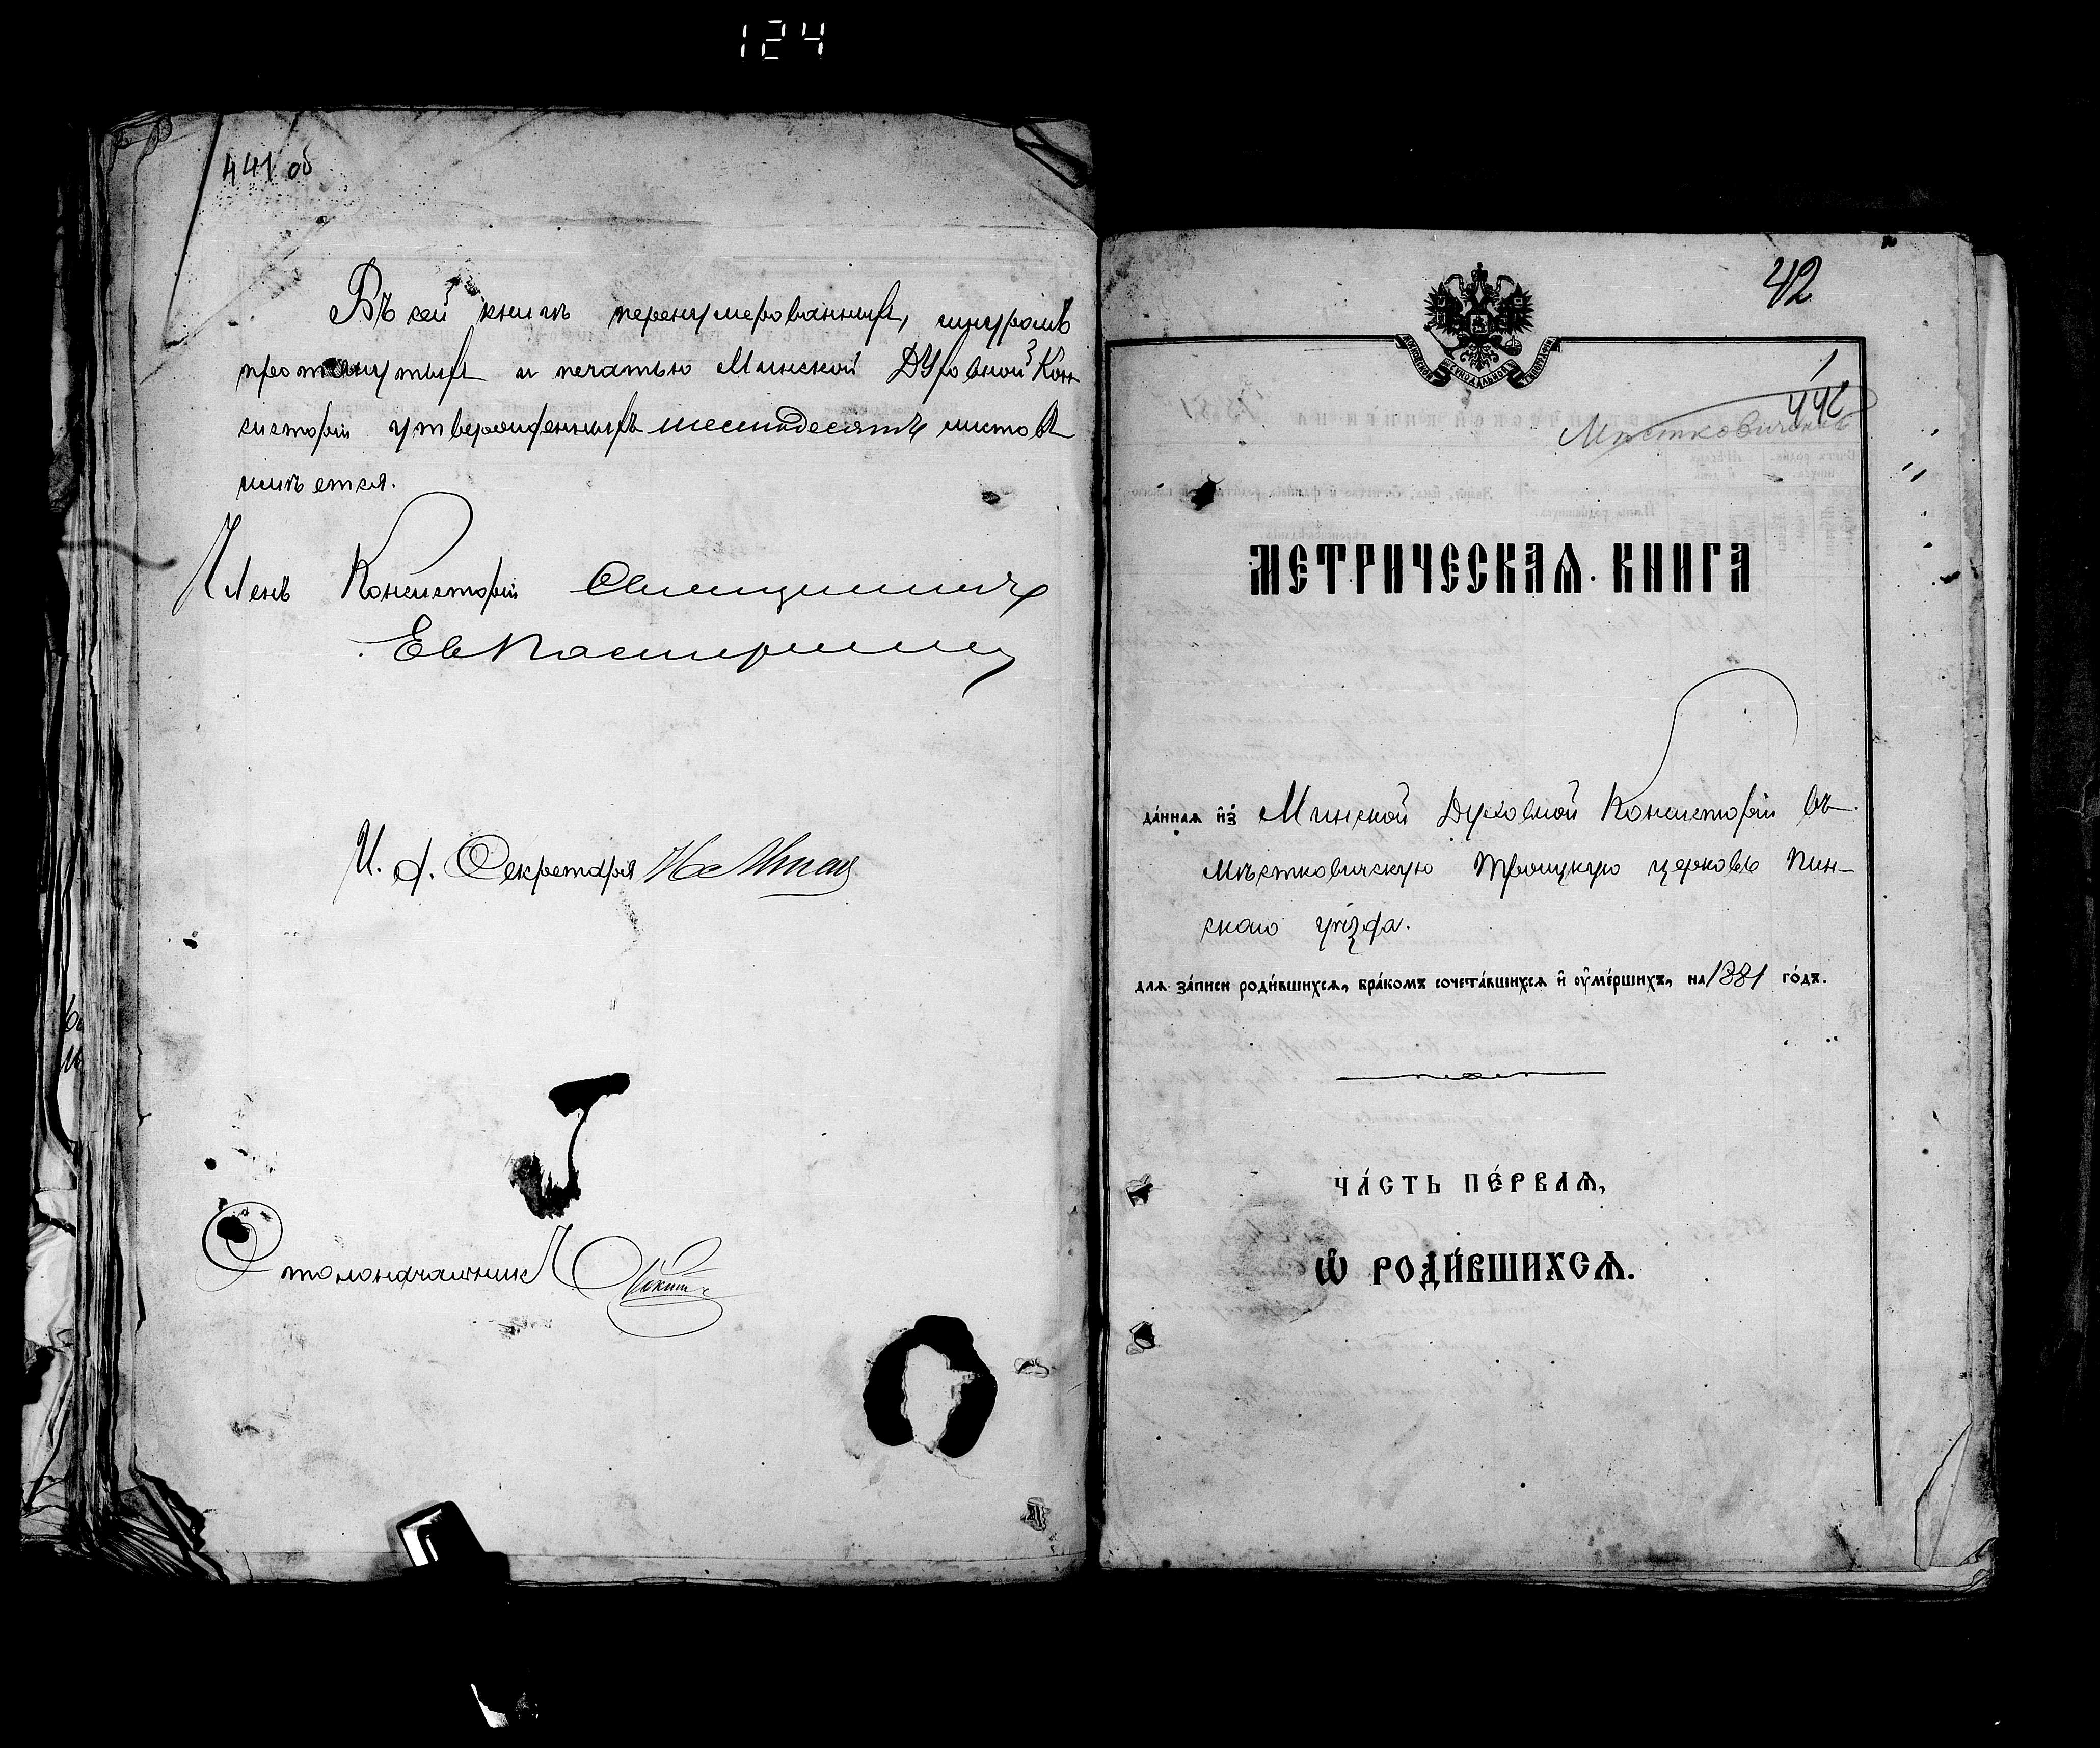 124
441 об
Въ сей книгѣ перенумерованныхъ, шнуромъ
протянутыхъ и печатью Минской Духовной Кон-
систоріи утвержденныхъ шестьдесятъ листовъ
имѣется.
Членъ Консисторіи Священникъ
И. д. Секретаря
Столоначальникъ
42
МОСКОВСКОЙ СѴНОДАЛЬНОЙ ТИПОГРАФІИ
1
442
МЕТРИЧЕСКАѦ КНИГА
да́ннаѧ и҆з̾ Минской Духовной Консисторіи въ
Мѣстковичскую Троицкую церковь Пин-
скаго уѣзда.
длѧ за́писи роди́вшихсѧ, бра́комъ сочета́вшихсѧ и҆ оу҆ме́ршихъ, на 1881 го́дъ.
ЧА́СТЬ ПЕ́РВАѦ,
Ѡ҆ РОДИ́ВШИХСѦ.